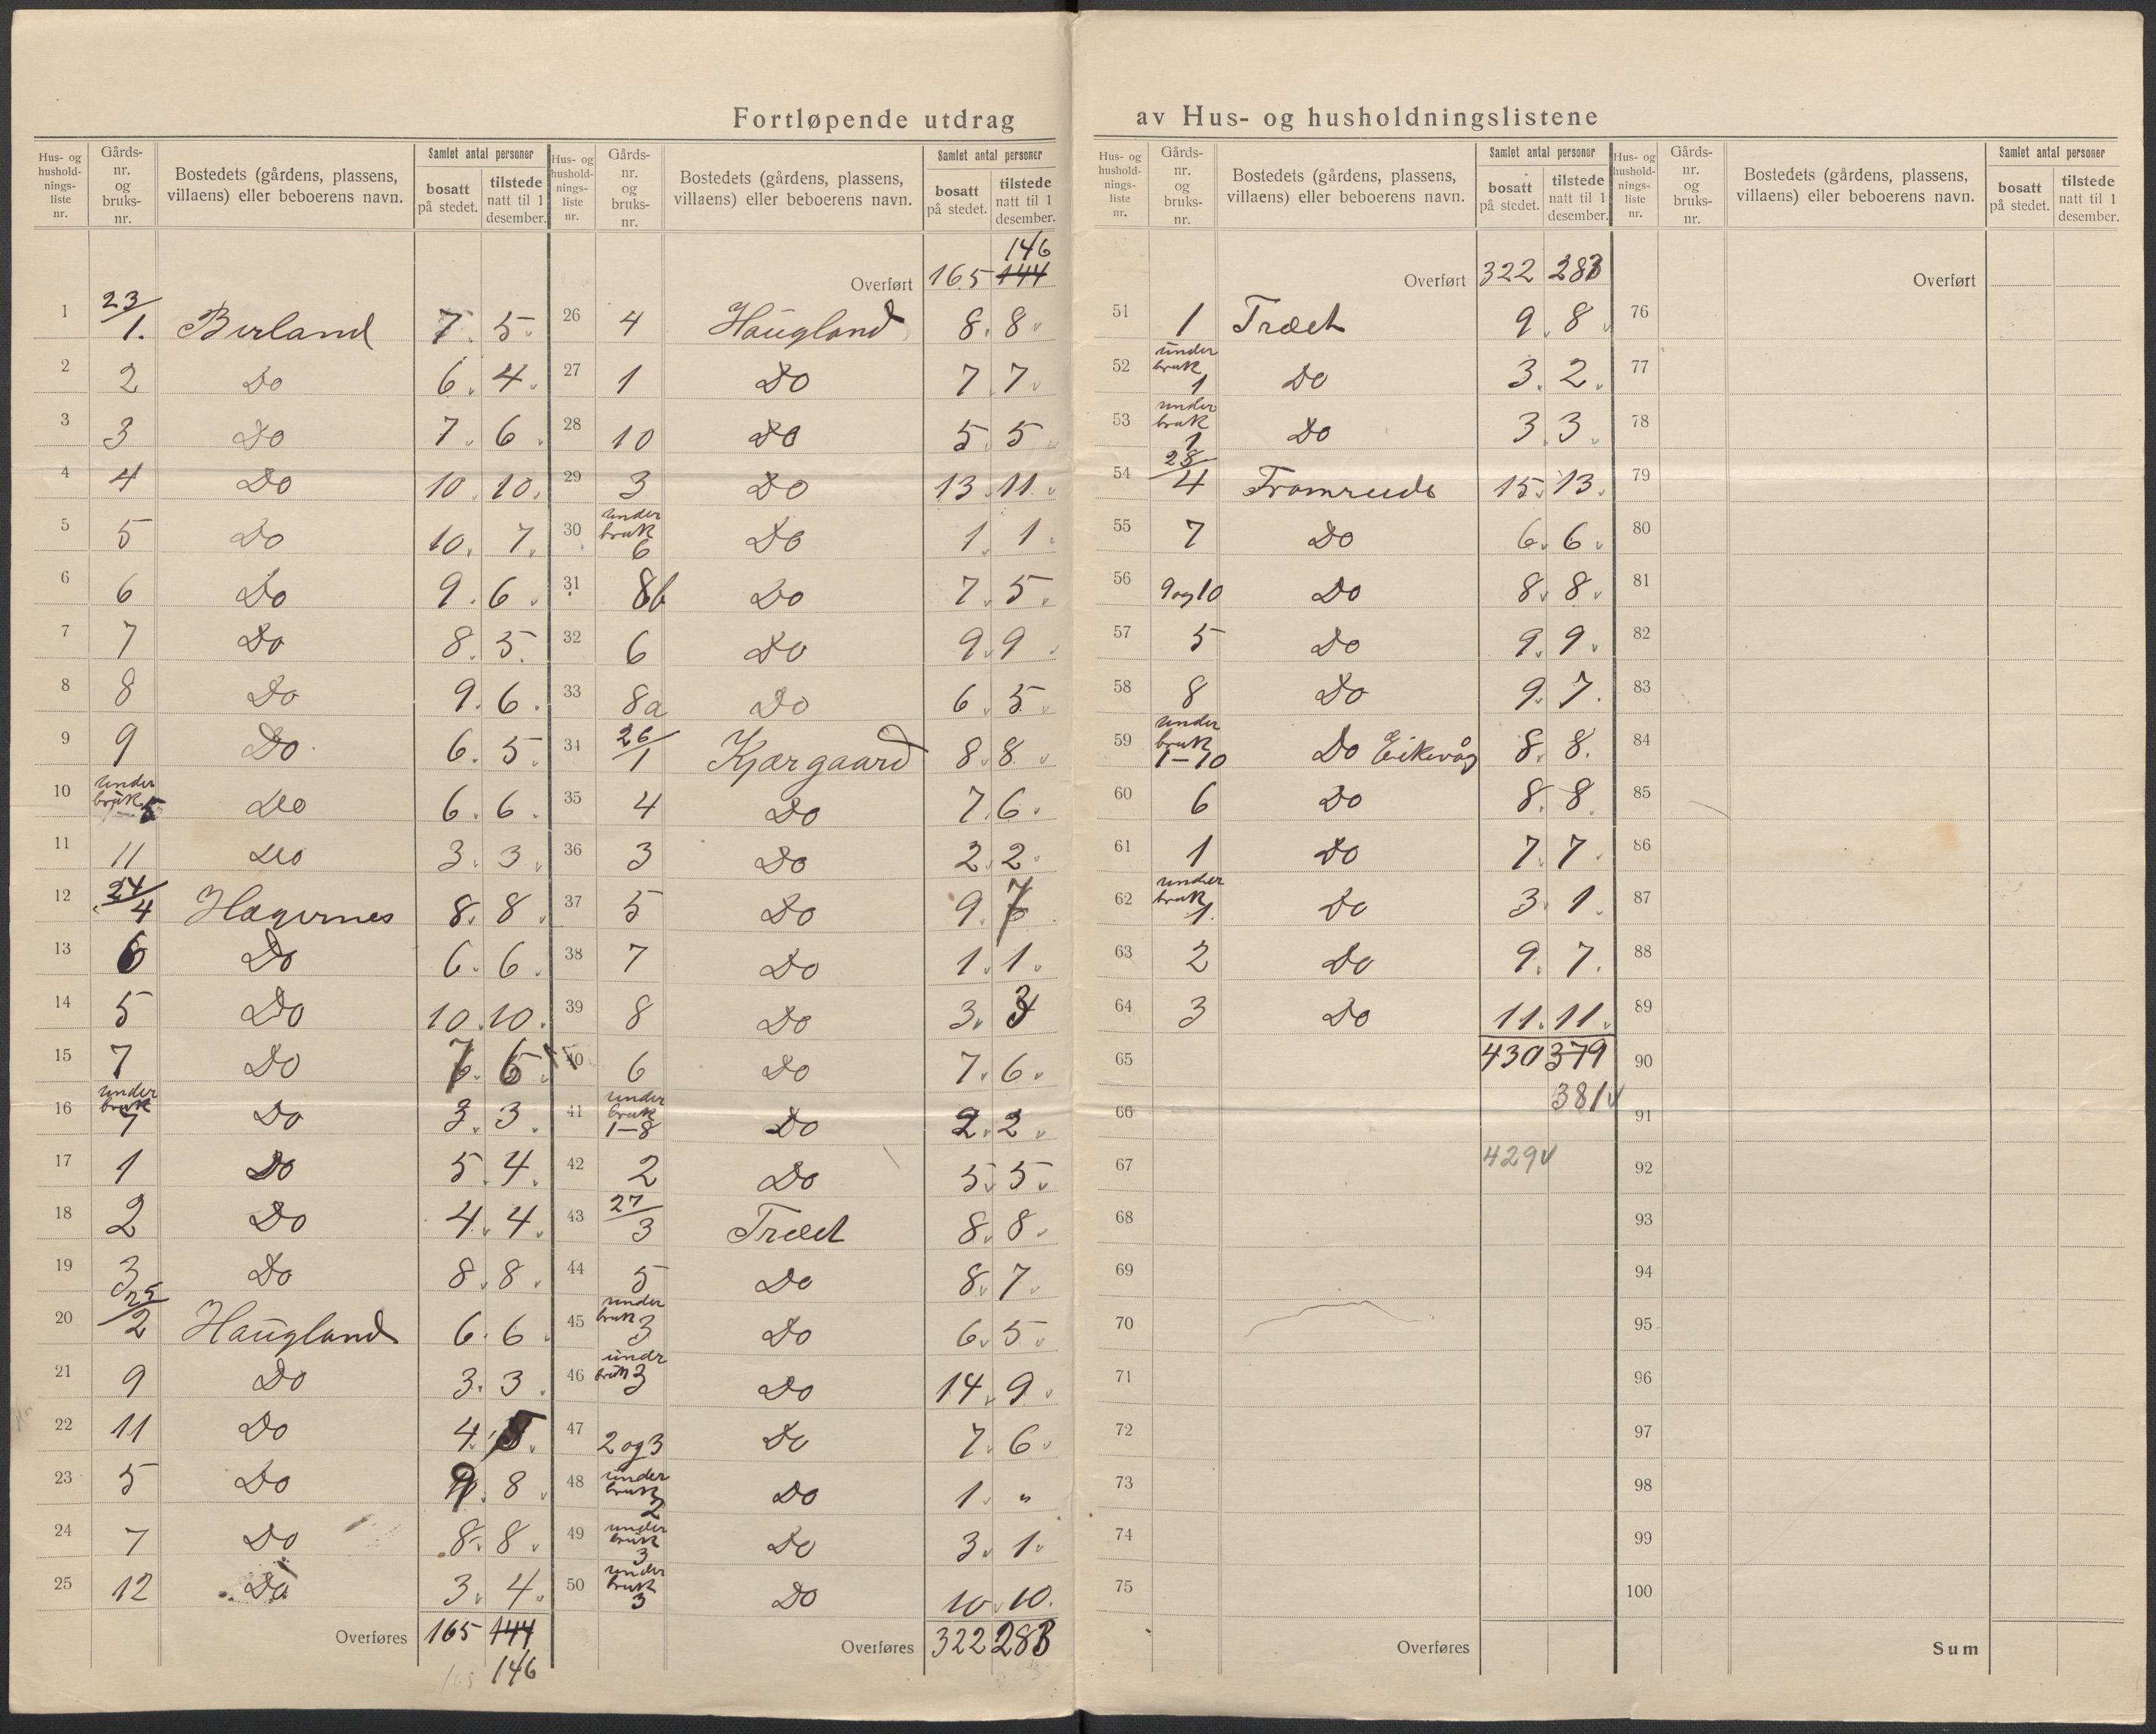 Fortløpende utdrag av Hus- og husholdningslistene
Hus- og husholdnings- liste nr. | Gårds- nr. og bruks- nr. | Bostedets (gårdens, plassens, villaens) eller beboerens navn. | Samlet antal personer bosatt på stedet. | tilstede natt til 1 desember.
1 23/1. Birland 7. 5.
2 2 Do 6. 4.
3 3 Do 7. 6.
4 4 Do 10. 10.
5 5 Do 10. 7.
6 6 Do 9. 6.
7 7 Do 8. 5.
8 8 Do 9. 6.
9 9 Do 6. 5.
10 under bruk 5 Do 6. 6.
11 11 Do 3. 3.
12 24/4 Hægernes 8. 8.
13 6 Do 6. 6.
14 5 Do 10. 10.
15 7 Do 7. 6.
16 under bruk 7 Do 3. 3.
17 1 Do 5. 4.
18 2 Do 4. 4.
19 3 Do 8. 8.
20 25/2 Haugland 6. 6.
21 9 Do 3. 3.
22 11 Do 4. 5.
23 5 Do 9. 8.
24 7 Do 8. 8.
25 12 Do 3. 4.
Overføres 165 144
165 146
Hus- og husholdnings- liste nr. | Gårds- nr. og bruks- nr. | Bostedets (gårdens, plassens, villaens) eller beboerens navn. | Samlet antal personer bosatt på stedet. | tilstede natt til 1 desember.
146
Overført 165 144
26 4 Haugland 8. 8.
27 1 Do 7. 7.
28 10 Do 5. 5.
29 3 Do 13. 11.
30 under bruk 6 Do 1. 1.
31 8b Do 7. 5.
32 6 Do 9. 9
33 8a Do 6. 5.
34 26/1 Kjærgaard 8. 8.
35 4 Do 7. 6.
36 3 Do 2. 2.
37 5 Do 9. 7
38 7 Do 1. 1.
39 8 Do 3. 3
40 6 Do 7. 6.
41 under bruk 1-8 Do 2. 2.
42 2 Do 5. 5.
43 27/3 Træet 8. 8.
44 5 Do 8. 7.
45 under bruk 3 Do 6. 5.
46 under bruk 3 Do 14. 9.
47 2 og 3 Do 7. 6.
48 under bruk 2 Do 1. "
49 under bruk 3 Do 3. 1.
50 under bruk 3 Do 10. 10.
Overføres 322 283
Hus- og husholdnings- liste nr. | Gårds- nr. og bruks- nr. | Bostedets (gårdens, plassens, villaens) eller beboerens navn. | Samlet antal personer bosatt på stedet. | tilstede natt til 1 desember.
Overført 322 283
51 1 Træet 9. 8
52 under bruk 1 Do 3. 2.
53 under bruk 1 Do 3. 3.
54 28/4 Framreide 15. 13.
55 7 Do 6. 6.
56 9 og 10 Do 8. 8.
57 5 Do 9. 9.
58 8 Do 9. 7.
59 under bruk 1-10 Do Eikevåg 8. 8.
60 6 Do 8. 8.
61 1 Do 7. 7.
62 under bruk 1. Do 3. 1.
63 2 Do 9. 7.
64 3 Do 11. 11.
65 430 379
66 381
67 429
68
69
70
71
72
73
74
75
Overføres
Hus- og husholdnings- liste nr. | Gårds- nr. og bruks- nr. | Bostedets (gårdens, plassens, villaens) eller beboerens navn. | Samlet antal personer bosatt på stedet. | tilstede natt til 1 desember.
Overført
76
77
78
79
80
81
82
83
84
85
86
87
88
89
90
91
92
93
94
95
96
97
98
99
100
Sum